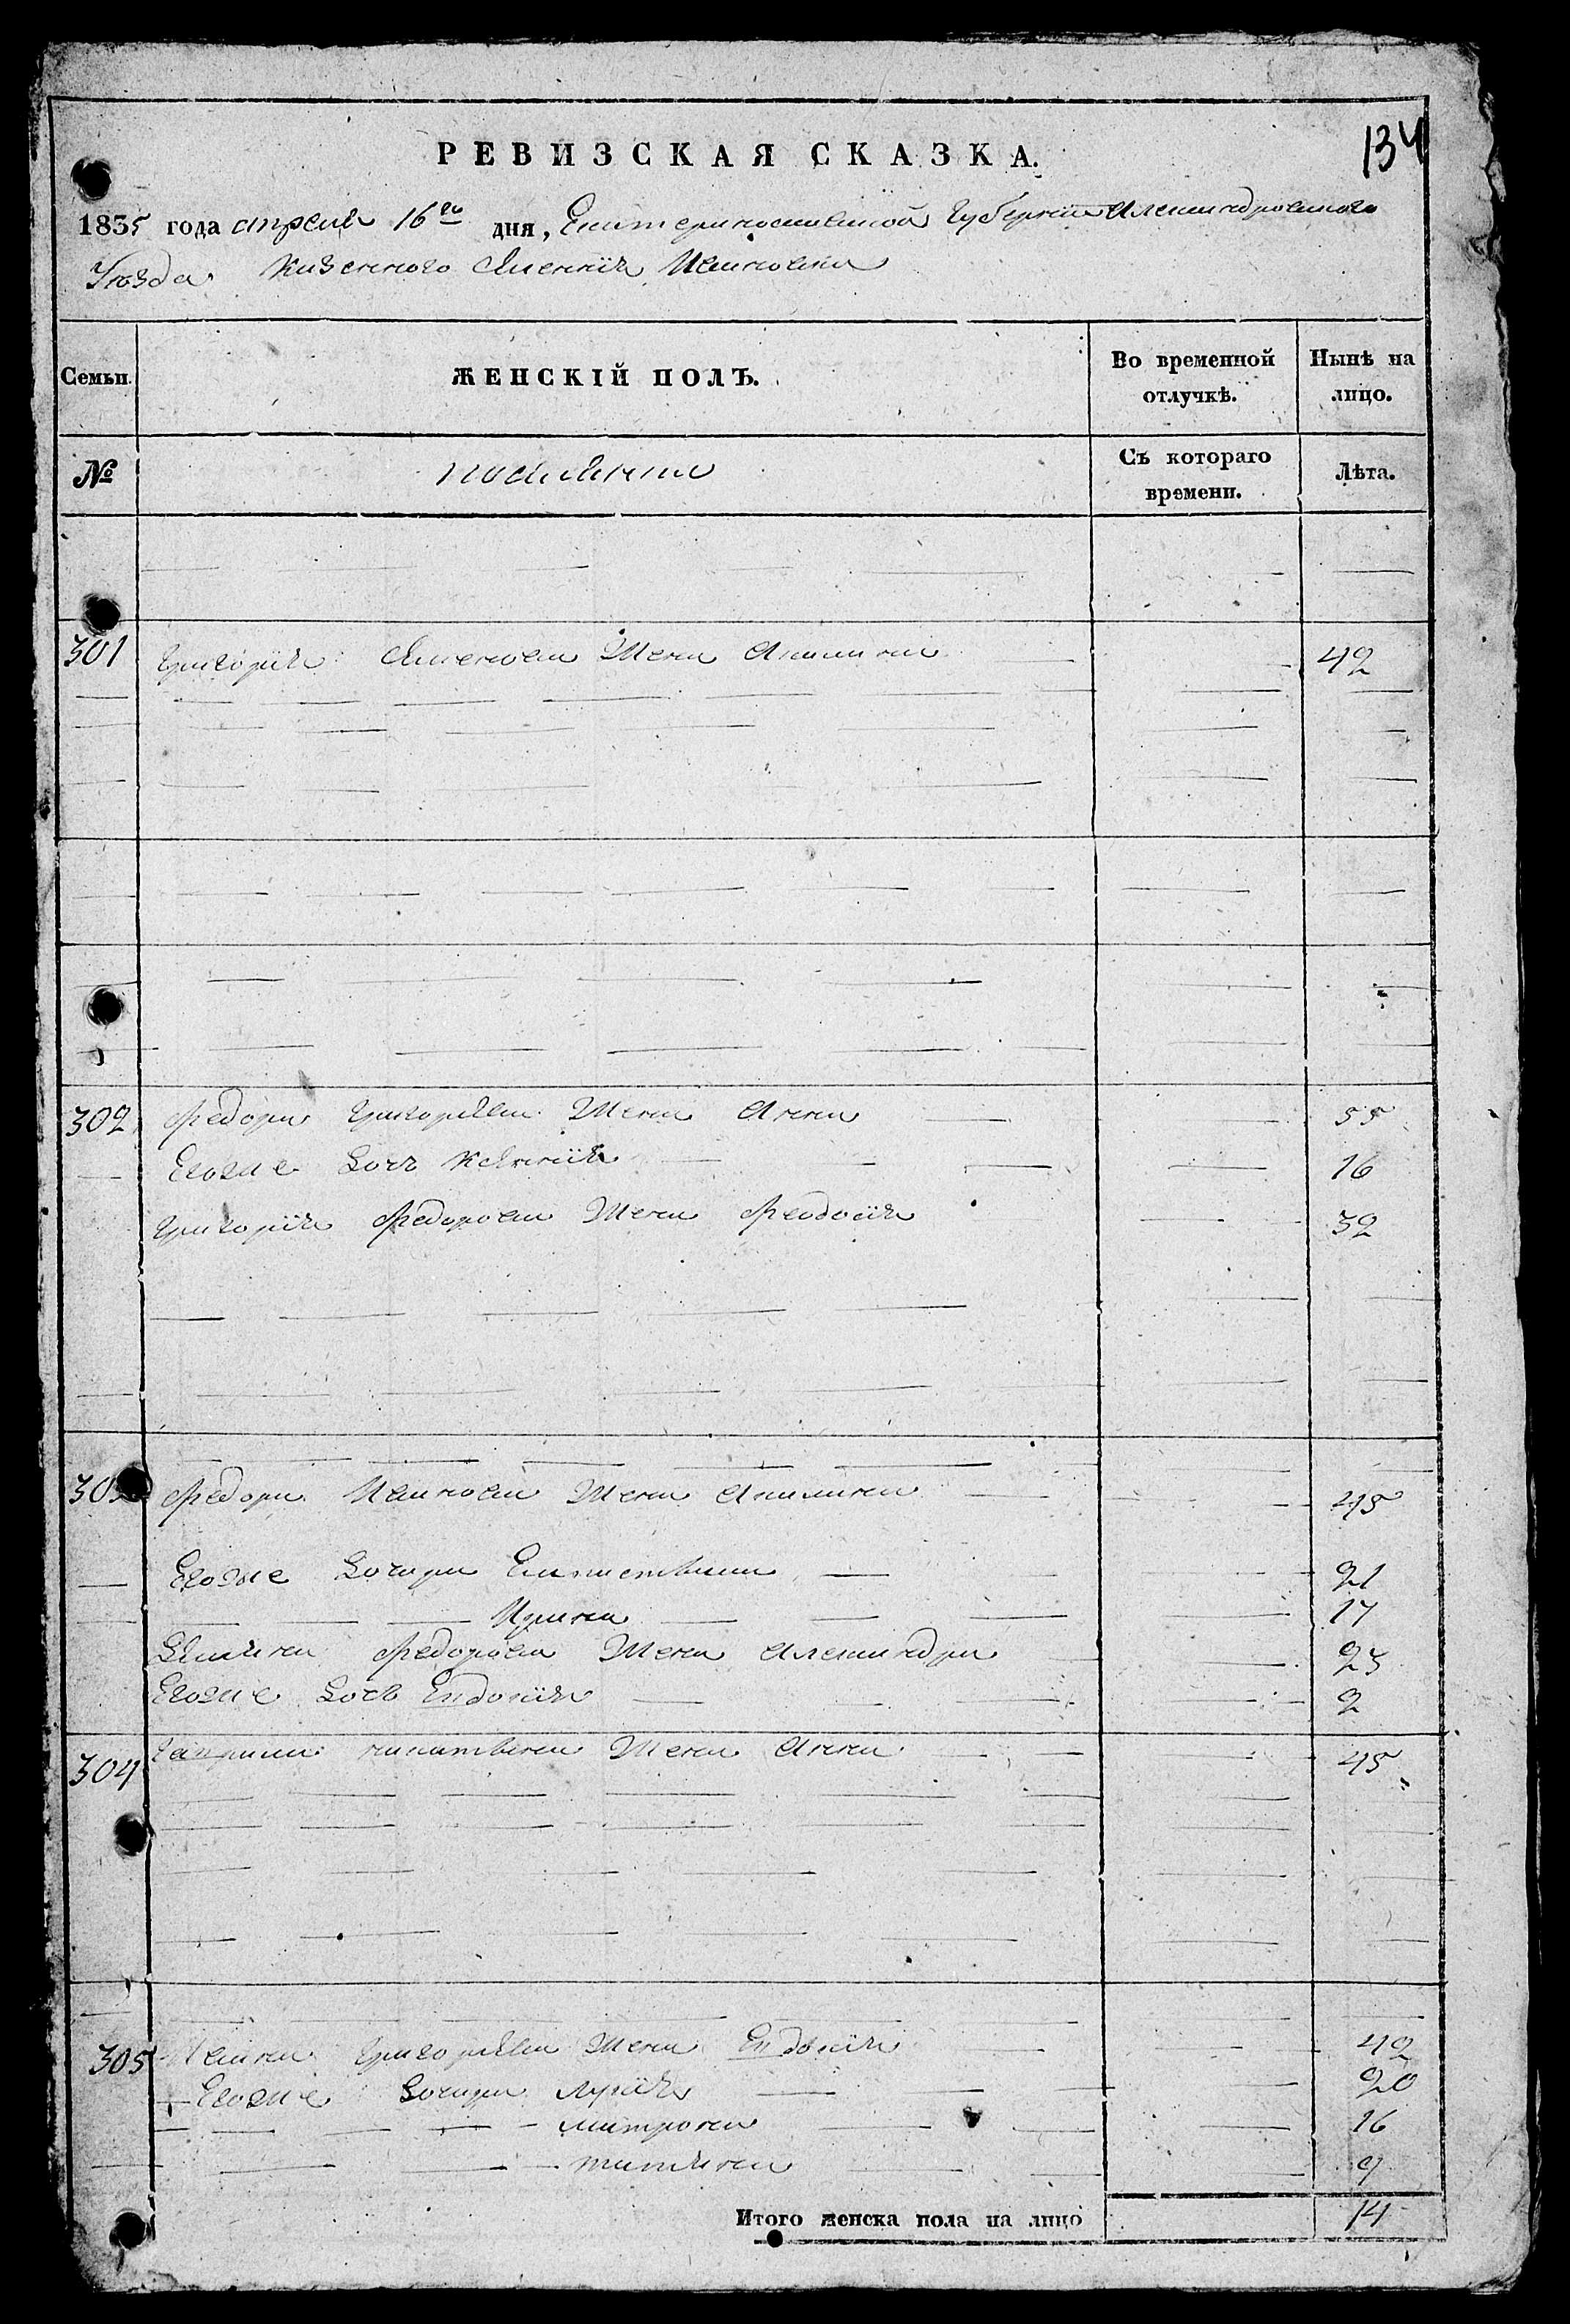 134
РЕВИЗСКАЯ СКАЗКА.
1835 года апреля 16го дня, Екатеринославской Губернии Александровского
Уезда Казенного Селения Ивановки
Семьи. ЖЕНСКІЙ ПОЛЪ. Во временной отлучкѣ. Нынѣ на лицо.
№ поселянки Съ котораго времени. Лѣта.
301 Григорія Семенова Жена Акилина 42
302 Федора Григорьева Жена Анна 55
Егоже Дочь Ксения 16
Григорія Федорова Жена Феодосія 32
303 Федора Иванова Жена Акилина 45
Егоже Дочери Елисавета 21
Ирина 17
Федорова Жена Александра 23
Егоже Дочь Евдокія 2
304 Гаврила Жена Анна 45
305 Ивана Григорьева Жена Евдокія 42
Егоже Дочери 20
Матрона 16
Татьяна 9
Итого женска пола на лицо 14